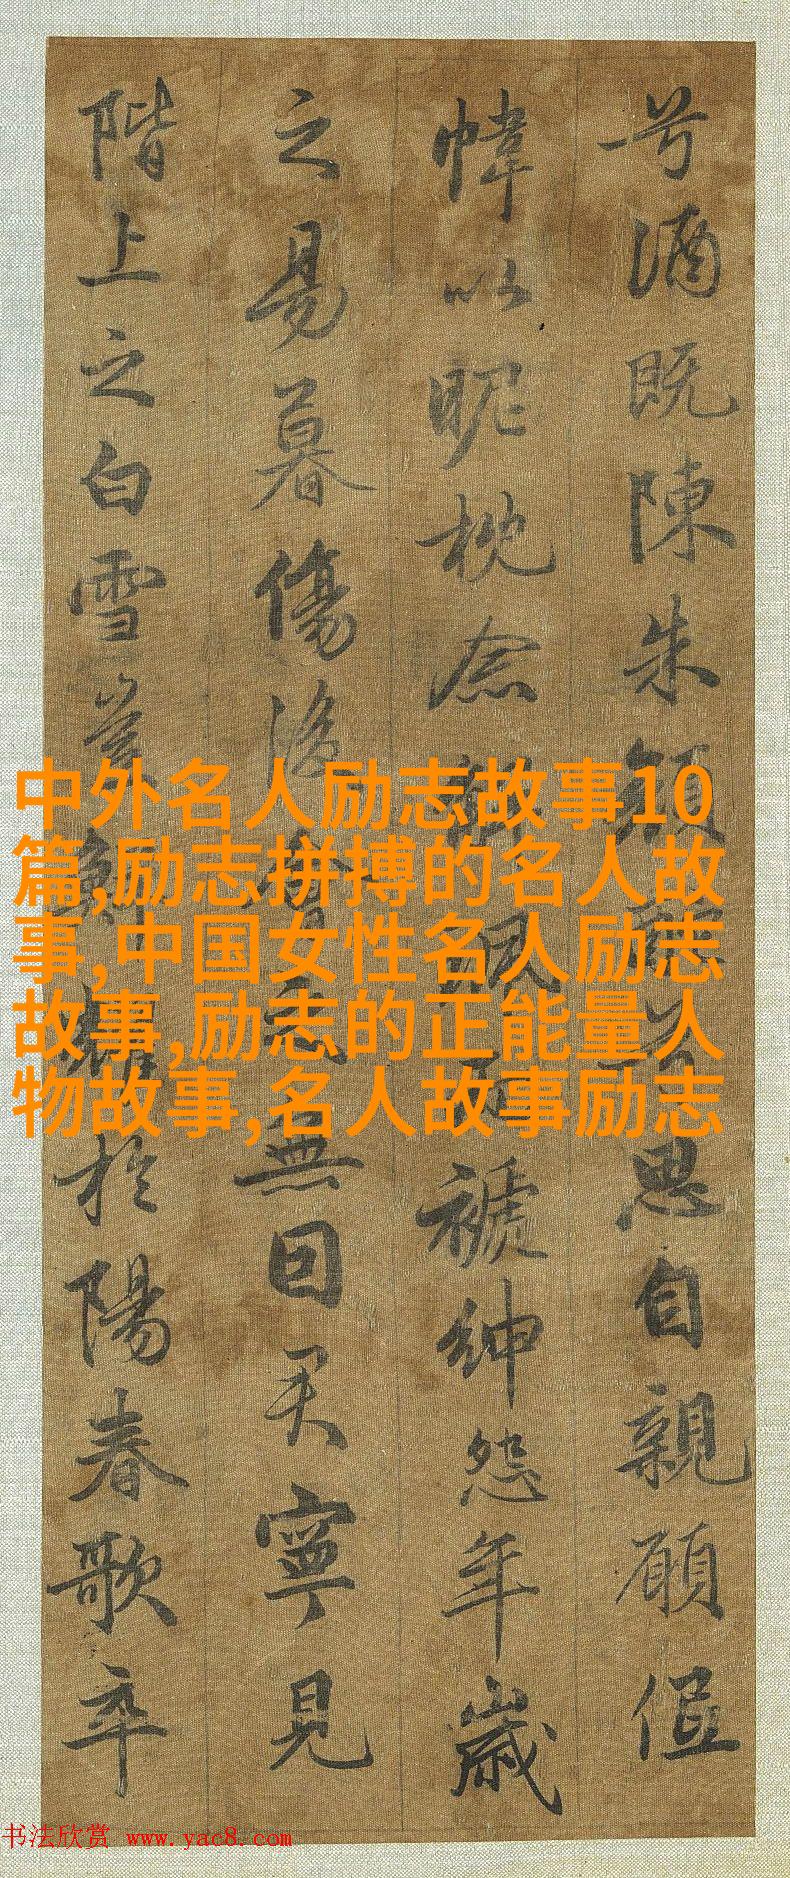 兮酒既陳朱顏思自親願低
幃以昵枕念褫紳怨年歲
之易暮傷後會之無因君寧見
階上之白雪豈鮮耀於陽春歌卒
中外名人励志故事10
篇,励志拼搏的名人故
事,中国女性名人励志
故事,励志的正能量人
物故事,名人故事励志
书法欣赏 www.yac8.com